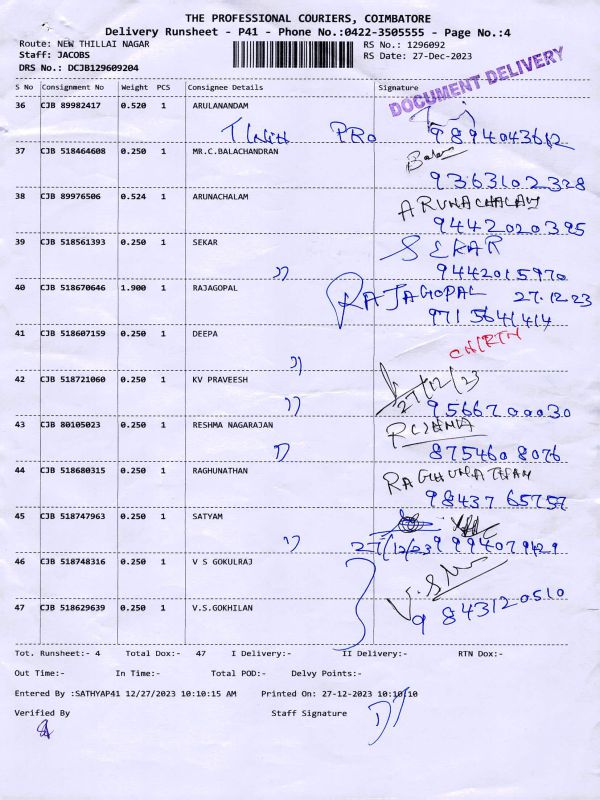 THE PROFESSIONAL COURIERS, COIMBATORE
Delivery Runsheet - P41 - Phone No.:0422-3505555 - Page No.:4
Route: NEW THILLAI NAGAR RS No.: 1296092
Staff: JACOBS RS Date: 27-Dec-2023
DRS No.: DCJB129609204
DOCUMENT DELIVERY
S No Consignment No Weight PCS Consignee Details Signature
36 CJB 89982417 0.520 1 ARULANANDAM
PRO 9894043612
37 CJB 518464608 0.250 1 MR.C.BALACHANDRAN Bala
9363102328
38 CJB 89976506 0.524 1 ARUNACHALAM ARUNACHALAM
9442020395
39 CJB 518561393 0.250 1 SEKAR SEKAR
9442015970
40 CJB 518670646 1.900 1 RAJAGOPAL RAJAGOPAL 27.12.23
9715641414
41 CJB 518607159 0.250 1 DEEPA
42 CJB 518721060 0.250 1 KV PRAVEESH 27/12/23
9566700030
43 CJB 80105023 0.250 1 RESHMA NAGARAJAN
8754608076
44 CJB 518680315 0.250 1 RAGHUNATHAN RAGHUNATHAN
98437 65757
45 CJB 518747963 0.250 1 SATYAM
27/12/23 9994079429
46 CJB 518748316 0.250 1 V S GOKULRAJ
47 CJB 518629639 0.250 1 V.S.GOKHILAN 9843120510
Tot. Runsheet:- 4 Total Dox:- 47 I Delivery:- II Delivery:- RTN Dox:-
Out Time:- In Time:- Total POD:- Delvy Points:-
Entered By :SATHYAP41 12/27/2023 10:10:15 AM Printed On: 27-12-2023 10:10:10
Verified By Staff Signature